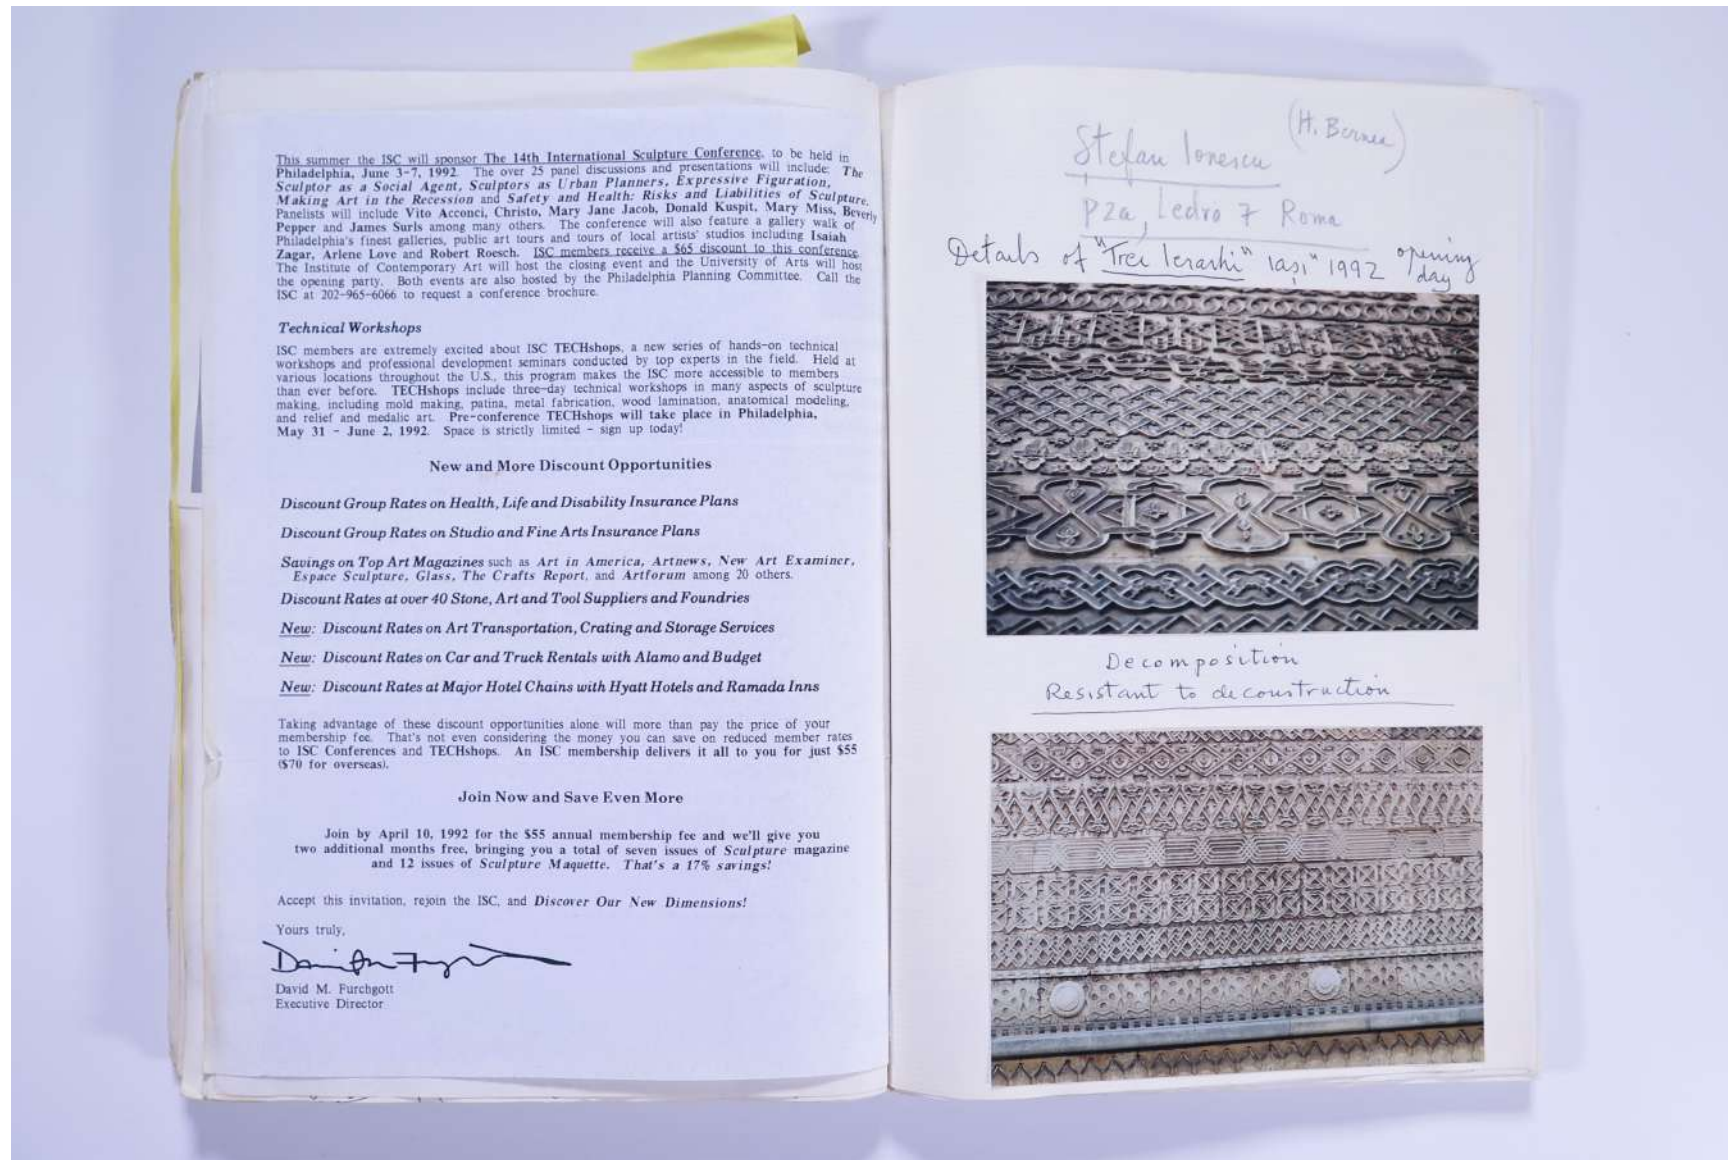 This summer the ISC will sponsor The 14th International Sculpture Conference, to be held in
Philadelphia, June 3-7, 1992. The over 25 panel discussions and presentations will include: The
Sculptor as a Social Agent, Sculptors as Urban Planners, Expressive Figuration,
Making Art in the Recession and Safety and Health: Risks and Liabilities of Sculpture.
Panelists will include Vito Acconci, Christo, Mary Jane Jacob, Donald Kuspit, Mary Miss, Beverly
Pepper and James Surls among many others. The conference will also feature a gallery walk of
Philadelphia's finest galleries, public art tours and tours of local artists' studios including Isaiah
Zagar, Arlene Love and Robert Roesch. ISC members receive a $65 discount to this conference.
The Institute of Contemporary Art will host the closing event and the University of Arts will host
the opening party. Both events are also hosted by the Philadelphia Planning Committee. Call the
ISC at 202-965-6066 to request a conference brochure.
Technical Workshops
ISC members are extremely excited about ISC TECHshops, a new series of hands-on technical
workshops and professional development seminars conducted by top experts in the field. Held at
various locations throughout the U.S., this program makes the ISC more accessible to members
than ever before. TECHshops include three-day technical workshops in many aspects of sculpture
making, including mold making, patina, metal fabrication, wood lamination, anatomical modeling,
and relief and medalic art. Pre-conference TECHshops will take place in Philadelphia,
May 31 - June 2, 1992. Space is strictly limited - sign up today!
New and More Discount Opportunities
Discount Group Rates on Health, Life and Disability Insurance Plans
Discount Group Rates on Studio and Fine Arts Insurance Plans
Savings on Top Art Magazines such as Art in America, Artnews, New Art Examiner,
Espace Sculpture, Glass, The Crafts Report, and Artforum among 20 others.
Discount Rates at over 40 Stone, Art and Tool Suppliers and Foundries
New: Discount Rates on Art Transportation, Crating and Storage Services
New: Discount Rates on Car and Truck Rentals with Alamo and Budget
New: Discount Rates at Major Hotel Chains with Hyatt Hotels and Ramada Inns
Taking advantage of these discount opportunities alone will more than pay the price of your
membership fee. That's not even considering the money you can save on reduced member rates
to ISC Conferences and TECHshops. An ISC membership delivers it all to you for just $55
($70 for overseas).
Join Now and Save Even More
Join by April 10, 1992 for the $55 annual membership fee and we'll give you
two additional months free, bringing you a total of seven issues of Sculpture magazine
and 12 issues of Sculpture Maquette. That's a 17% savings!
Accept this invitation, rejoin the ISC, and Discover Our New Dimensions!
Yours truly,
David M. Furchgott
Executive Director
(H. Bernea)
Stefan Ionescu
Pza, Ledro 7 Roma
Details of "Trei Ierarhi" Iași" 1992 opening
day
Decomposition
Resistant to deconstruction